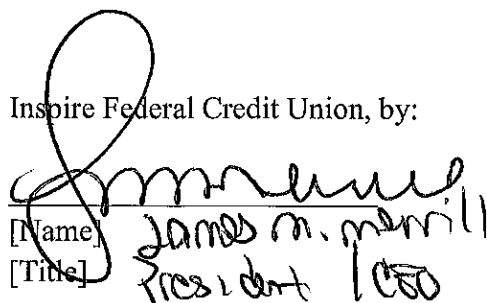 Inspire Federal Credit Union, by:
[Name] James M. Merrill
[Title] President / CEO